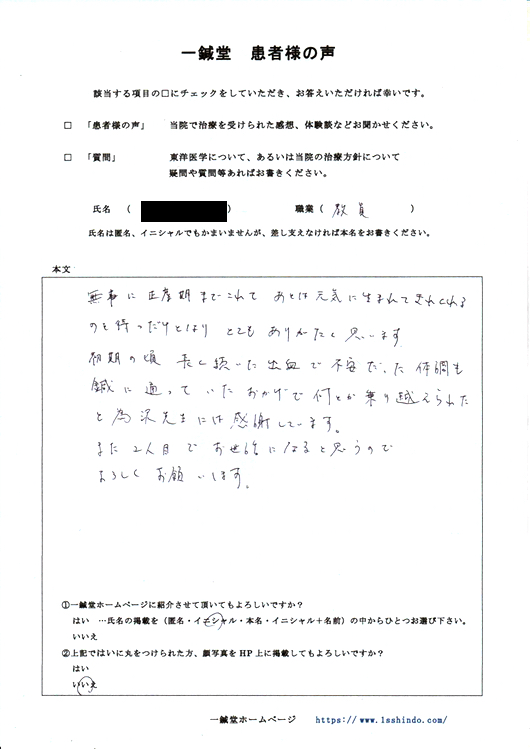 一鍼堂 患者様の声
該当する項目の□にチェックをしていただき、お答えいただければ幸いです。
□ 「患者様の声」 当院で治療を受けられた感想、体験談などお聞かせください。
□ 「質問」 東洋医学について、あるいは当院の治療方針について
疑問や質問等あればお書きください。
氏名 ( ) 職業( 教員 )
氏名は匿名、イニシャルでもかまいませんが、差し支えなければ本名をお書きください。
本文
無事に正産期までこれて あとは元気に生まれてきれくれる
のを待つだけとなり とても ありがたく 思います
初期の頃 長く続いた出血で不安だった体調も
鍼に通っていたおかげで何とか乗り越えられた
と為沢先生には感謝しています。
また2人目でお世話になると思うので
よろしくお願いします。
①一鍼堂ホームページに紹介させて頂いてもよろしいですか?
はい …氏名の掲載を(匿名・イニシャル・本名・イニシャル+名前)の中からひとつお選び下さい。
いいえ
②上記ではいに丸をつけられた方、顔写真をHP上に掲載してもよろしいですか?
はい
いいえ
一鍼堂ホームページ https://www.1sshindo.com/